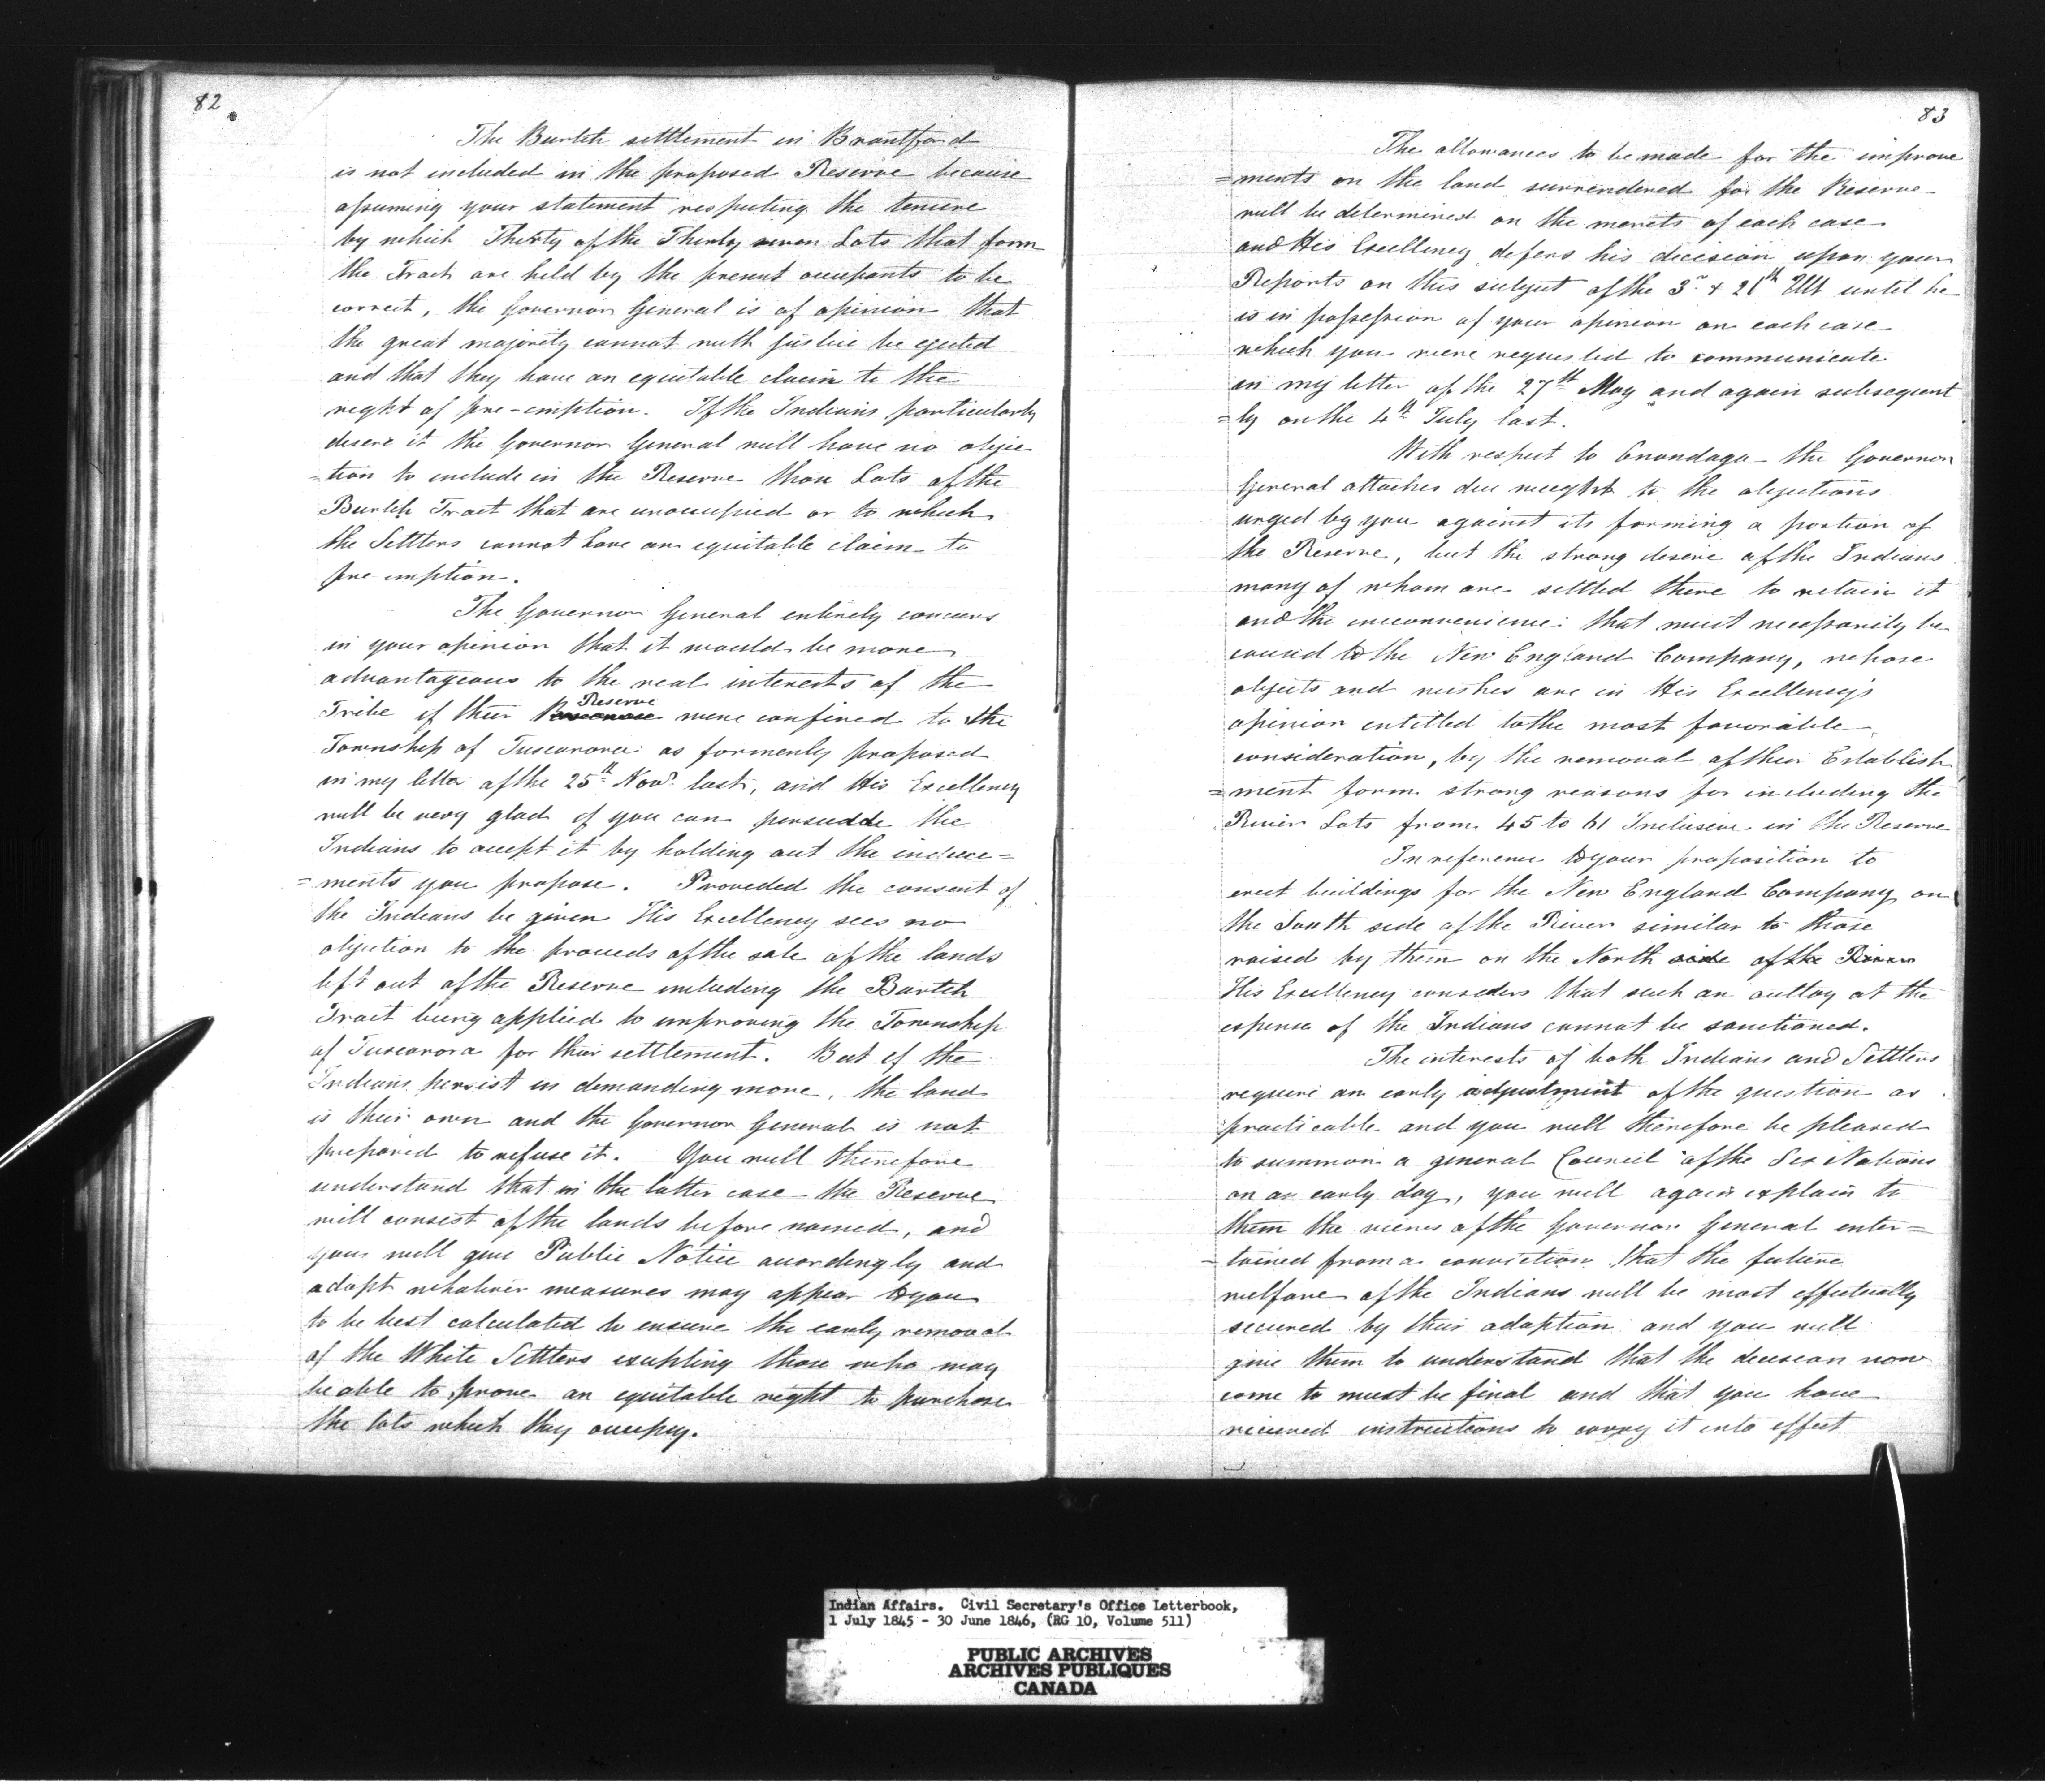 82
The Burtch settlement in Brantford
is not included in the proposed Reserve because
assuming your statement respecting the tenure
by which Thirty of the Thirty seven Lots that form
the Tract are held by the present occupants to be
correct, the Governor General is of opinion that
the great majority cannot with justice be ejected
and that they have an equitable claim to the
right of pre-emption. If the Indians particularly
desire it the Governor General will have no objec
=tion to include in the Reserve those Lots of the
Burtch Tract that are unoccupied or to which
the Settlers cannot have an equitable claim to
pre emption.
The Governor General entirely concurs
in your opinion that it would be more
advantageous to the real interests of the
Tribe if their Reserve were confined to the
Township of Tuscarora as formerly proposed
in my letter of the 25th Novr. last, and His Excellency
will be very glad if you can persuade the
Indians to accept it by holding out the induce=
=ments you propose. Provided the consent of
the Indians be given His Excellency sees no
objection to the proceeds of the sale of the lands
left out of the Reserve including the Burtch
Tract being applied to improving the Township
of Tuscarora for their settlement. But if the
Indians persist in demanding more, the land
is their own and the Governor General is not
prepared to refuse it. You will therefore
understand that in the latter case the Reserve
will consist of the lands before named, and
you will give Public Notice accordingly and
adopt whatever measures may appear to you
to be best calculated to ensure the early removal
of the White Settlers excepting those who may
be able to prove an equitable right to purchase
the lots which they occupy.
83
The allowances to be made for the improve
=ments on the land surrendered for the Reserve
will be determined on the merits of each case
and His Excellency defers his decision upon your
Reports on this subject of the 3r & 21th Ult until he
is in possession of your opinion on each case
which you were requested to communicate
in my letter of the 27th May and again subsequent
=ly on the 4th July last.
With respect to Onondaga the Governor
General attaches due weight to the objections
urged by you against its forming a portion of
the Reserve, but the strong desire of the Indians
many of whom are settled there to retain it
and the inconvenience that must necessarily be
caused to the New England Company, whose
objects and wishes are in His Excellency's
opinion entitled to the most favorable
consideration, by the removal of their Establish
=ment form strong reasons for including the
River Lots from 45 to 61 Inclusive in the Reserve
In reference to your proposition to
erect buildings for the New England Company on
the South side of the River similar to those
raised by them on the North side of the River
His Excellency considers that such an outlay at the
expense of the Indians cannot be sanctioned.
The interests of both Indians and Settlers
require an early adjustment of the question as
practicable and you will therefore be pleased
to summon a general Council of the Six Nations
on an early day, you will again explain to
them the views of the Governor General enter=
=tained from a conviction that the future
welfare of the Indians will be most effectually
secured by their adoption and you will
give them to understand that the decision now
come to must be final and that you have
received instructions to carry it into effect
Indian Affairs. Civil Secretary's Office Letterbook,
1 July 1845 - 30 June 1846, (RG 10, Volume 511)
PUBLIC ARCHIVES
ARCHIVES PUBLIQUES
CANADA